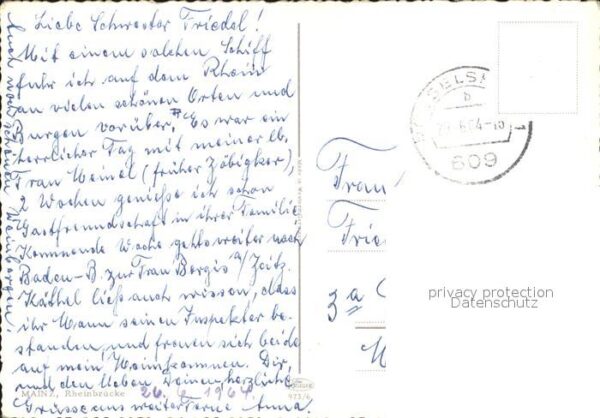 Liebe Schwester Friedel!
Mit einem solchen Schiff
fuhr ich auf dem Rhein
an vielen schönen Orten und
Burgen vorüber. Es war ein
herrlicher Tag mit meiner lb.
Frau Meinel (früher Zöbigker),
2 Wochen genieße ich schon
Gastfreundschaft in ihrer Familie
Kommende Woche gehts weiter nach
Baden-B. zur Frau Bergis a/Zeitz.
Käthel ließ auch wissen, dass
ihr Mann seinen Inspektor be-
standen und freuen sich beide
auf mein Heimkommen. Dir,
und den lieben Deinen herzliche
Grüsse aus weiter Ferne Anna
MAINZ, Rheinbrücke
26. 1964
973/4
auch noch
609
b
Frau
Frie
3a
privacy protection
Datenschutz